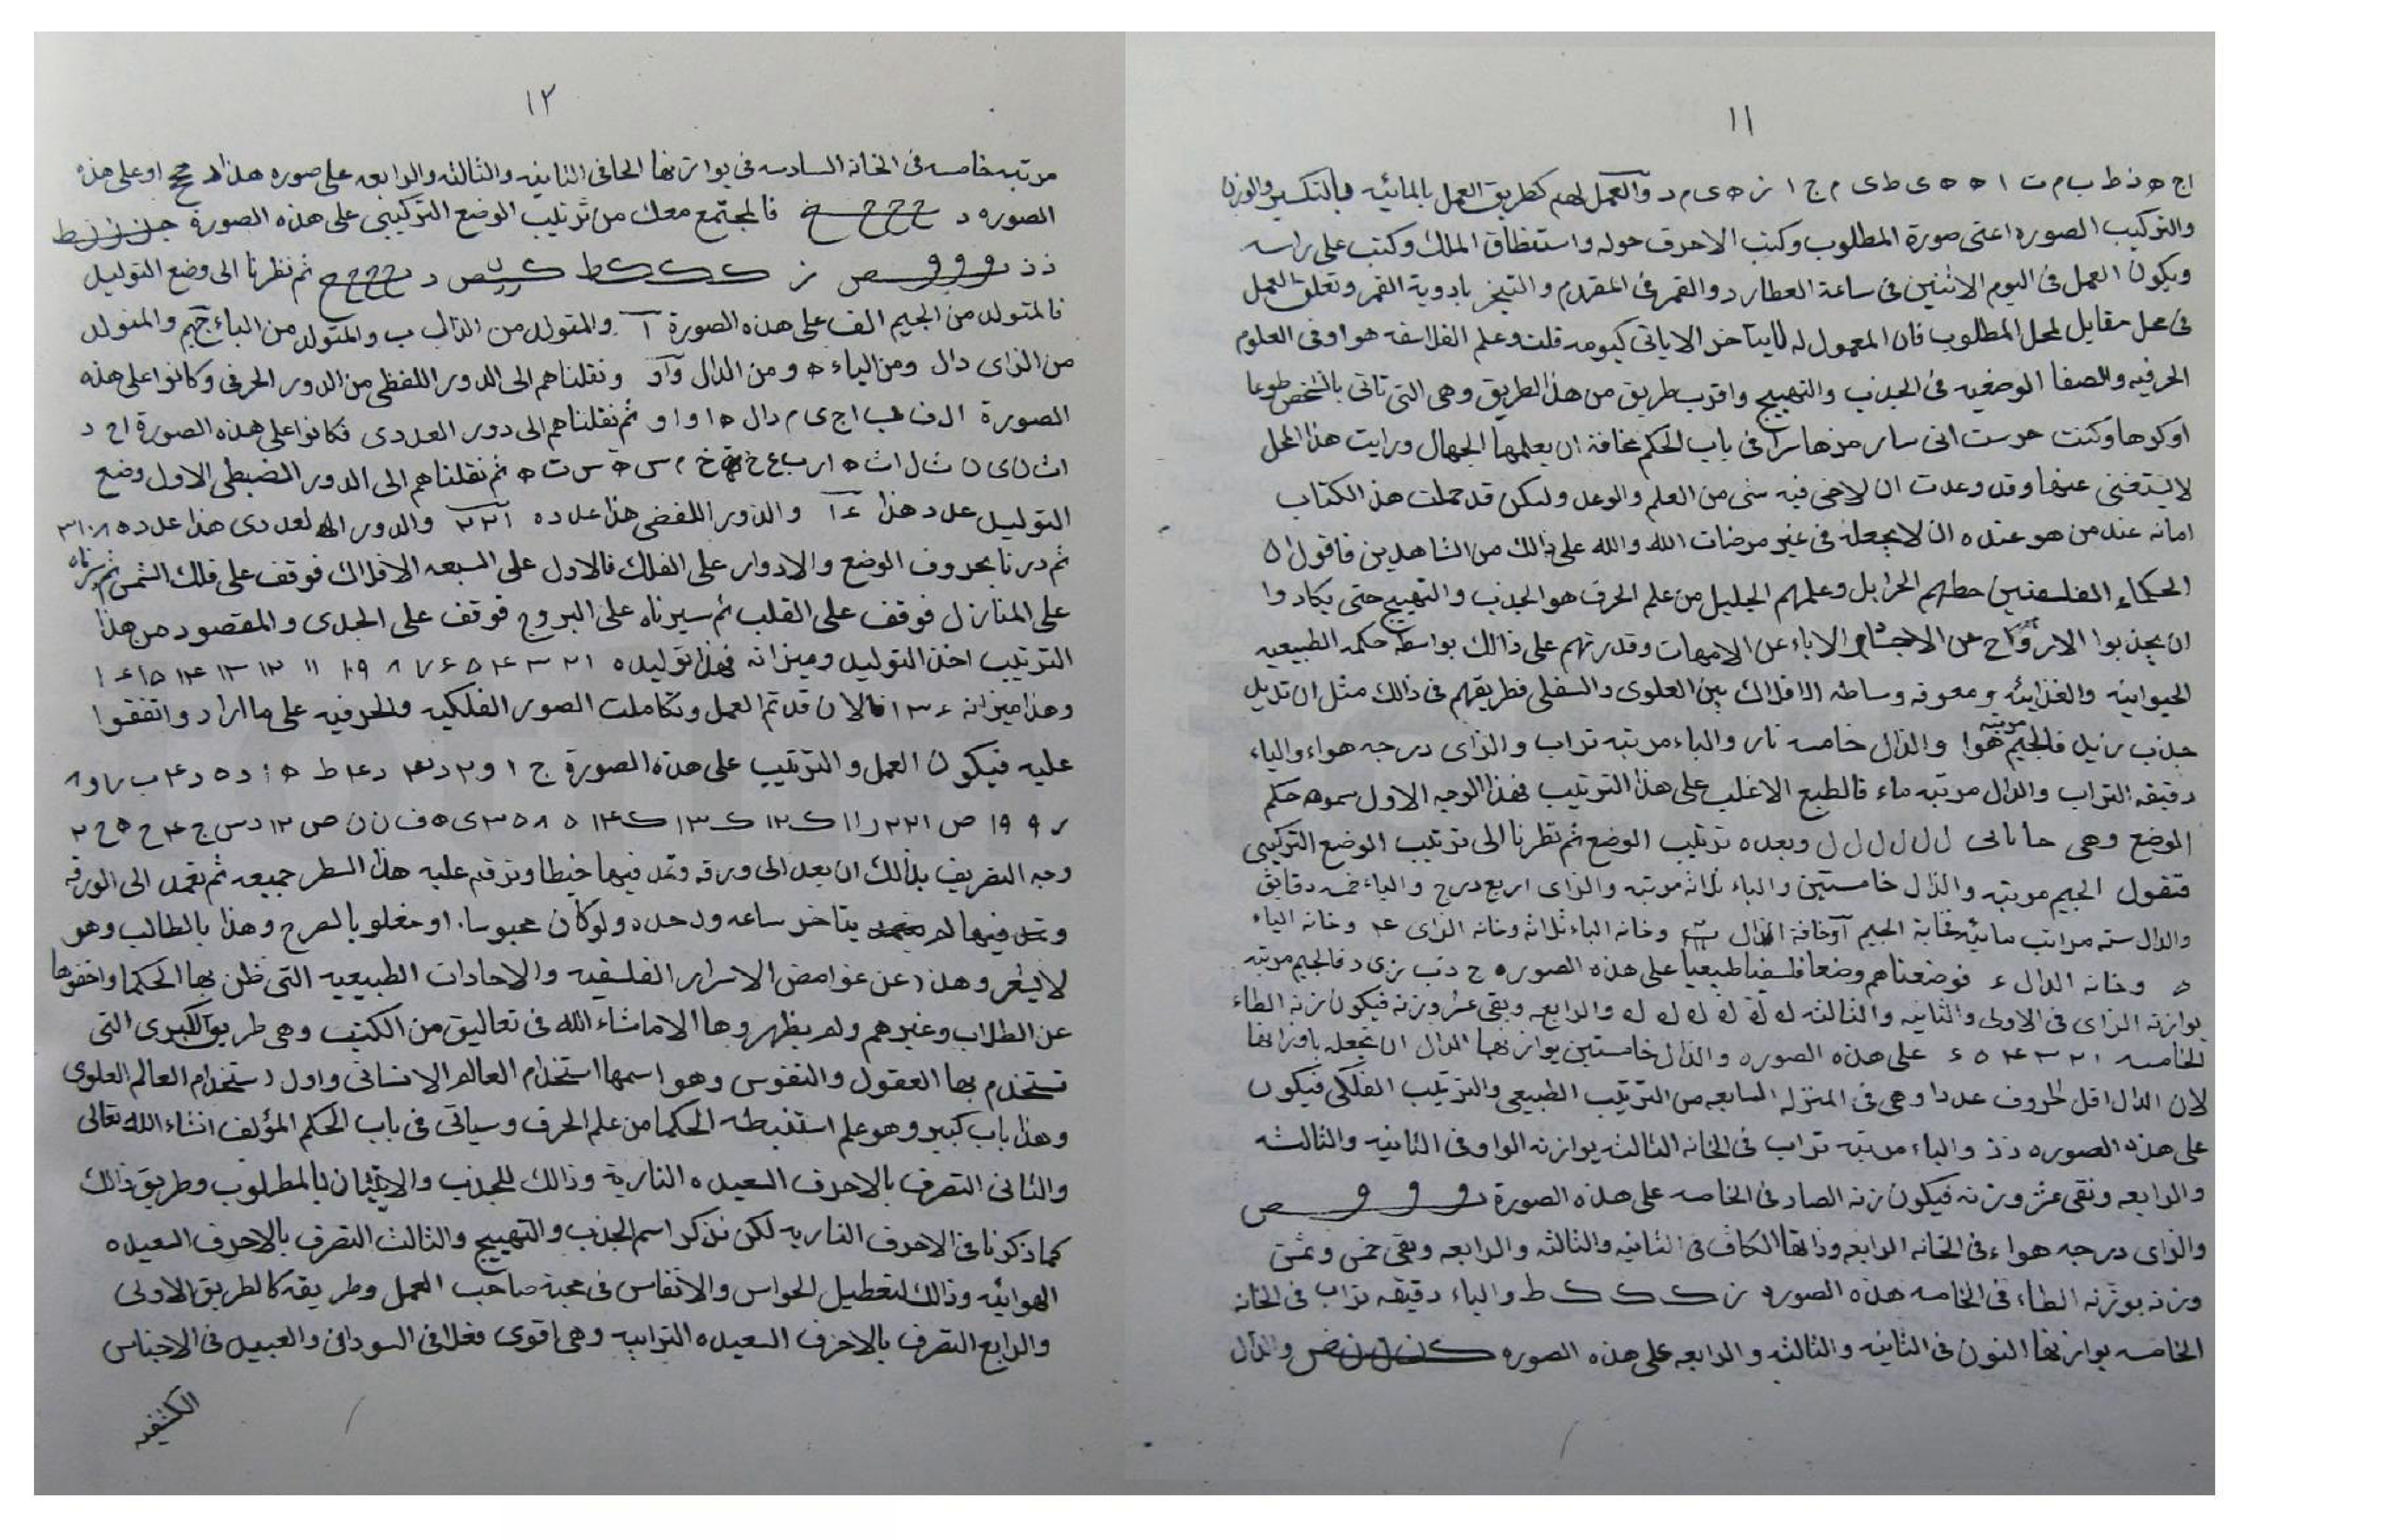 ١١
اج ه ذ ط ب م ت ا ه ه ى ط ى م ج ا ز ه ى م د والعمل لهم كطريق العمل بالمائيه فبالتكسير والوزن
والتركيب الصوره اعنى صورة المطلوب وكتب الاحرف حوله واستنطاق الملك وكتب على راسه
ويكون العمل فى اليوم الاثنين فى ساعة العطارد والقمر فى المقدم والتبخر بادوية القمر وتعلق العمل
فى محل مقابل لمحل المطلوب فان المعمول له لايتاخر الا ياتى كيومه قلت وعلم الفلاسفه هو اوفى العلوم
الحرفيه والصفا الوضعيه فى الجذب والتهييج واقرب طريق من هذا لطريق وهى التى تاتى بالشخص طوعا
اوكرها وكنت حرست انى سارمزها سرا فى باب الحكم مخافة ان يعلمها الجهال ورايت هذا المحل
لايستغنى عنها وقد وعدت ان لاخى فيه شى من العلم والوعد ولكن قد حملت هذ الكتاب
امانه عند من هو عنده ان لا يجعله فى غير مرضات الله والله على ذالك من الشاهدين فاقول ان
الحكماء الفلسفتين حطهم الجزايل وعلمهم الجليل من علم الحرف هو الجذب والتهييج حتى يكادوا
ان يجذبوا الارواح عن الاجسام والاباء عن الامهات وقدرتهم على ذالك بواسطة حكمه الطبيعيه
الحيوانيه والغذائيه ومعرفه وساطه الافلاك بين العلوى والسفلى فطريقهم فى ذالك مثل ان تديل
جذب زيد فالجيم مرتبه هوا والذال خامسه نار والباء مرتبه تراب والزاى درجه هواء والياء
دقيقه التراب والدال مرتبه ماء فالطبع الاغلب على هذا الترتيب فهذا الوجه الاول سموه حكم
الوضع وهى ل ل ل ل ل ل وبعده ترتيب الوضع ثم نظرنا الى ترتيب الوضع التركيبى
فتقول الجيم مرتبه والذال خامستين والباء ثلاثه مرتبه والزاى اربع درج والياء خمسه دقايق
والدال سته مراتب مائيه الجيم الذال وخانه الباء ثلاثه وخانه الزاى ٤ وخانه الياء
٥ وخانه الدال ء فوضعناهم وضعا فلسفيا طبيعيا على هذه الصوره ج ذ ب ز ى د فالجيم مرتبه
يوازنه الزاى فى الاولى والثانيه والثالثه والرابعه وبقى عشر وزنه فيكون زنه الطاء
الخامسه على هذه الصوره والذال خامستين يوازنهما الدال ان تجعله باوزانها
لان الدال اقل الحروف عددا وهى فى المنزله السابعه من الترتيب الطبيعى والترتيب الفلكى فيكون
على هذه الصوره ذذ والباء مرتبه تراب فى الخانه الثالثه يوازنه الواو فى الثانيه والثالثه
والرابعه وبقى عشر وزنه فيكون زنه الصاد فى الخامسه على هذه الصورة و و و ص
والزاى درجه هواء فى الخانه الرابعه وذاتها الكاف فى الثانيه والثالثه والرابعه وبقى خمس وعشر
وزنه يوزنه الطاء فى الخامسه هذه الصوره ز ك ك ك ط والياء دقيقه تراب فى الخانه
الخامسه يوازنها النون فى الثانيه والثالثه والرابعه على هذه الصوره والدال
١٢
مرتبه خامسه فى الخانه السادسه فى يوازنها الحا فى الثانيه والثالثه والرابعه على صوره هذا او على هذه
الصوره د ح ح ح فالمجتمع معك من ترتيب الوضع التركيبى على هذه الصورة
ذذ و و و ص ز ك ك ك ط د ثم نظرنا الى وضع التوليد
فالمتولد من الجيم الف على هذه الصورة آ والمتولد من الذال ب والمتولد من الباء جيم والمتولد
من الزاى دال ومن الياء ه ومن الدال واو ونقلناهم الى الدور اللفظى من الدور الحرفى وكانوا على هذه
الصورة ال ف ا ج ى م دال ه ا و ا و ثم نقلناهم الى دور العددى فكانوا على هذه الصورة اح د
اث ن ى ن ث ل اث ه ارب ع خ م س ه س ت ه ثم نقلناهم الى الدور الضبطى الاول وضع
التوليد عدد هذا والدور اللفضى هذا عدده ٢٢١ والدور العددى هذا عدده
ثم درنا بحروف الوضع والادوار على الفلك فالاول على السبعه الافلاك فوقف على فلك الشمس ثم سرناه
على المنازل فوقف على القلب ثم سيرناه على البروج فوقف على الجدى والمقصود من هذا
الترتيب اخذ التوليد وميزانه فهذا توليده ١ ٢ ٣ ٤ ٥ ٦ ٧ ٨ ٩ ١٠ ١١ ١٢ ١٣ ١٤ ١٥ ١٦
وهذا ميزانه فالان قد تم العمل وتكاملت الصور الفلكيه والحرفيه على ما اراد واتفقوا
عليه فيكون العمل والترتيب على هذه الصورة ج ١ و ٢
ص ٢٢١ ١١ ك ١٢ ك ١٣ ك ١٤ ى ه ف ن ن ص ١٢ د س ج ٤ ح ه ح ٢
وجه التصريف بذالك ان يعد الى ورقه وتمد فيها خيطا وترقم عليه هذا السطر جميعه ثم تعمد الى الورقه
وتمد فيها لم يتاخر ساعه واحده ولوكان محبوسا او مغلوبا لصرح وهذا بالطالب وهو
لايشعر وهذا عن غوامض الاسرار الفلسفيه والاحادات الطبيعيه التى ظن بها الحكما واخفوها
عن الطلاب وغيرهم ولم يظهروها الا ماشاء الله فى تعاليق من الكتب وهى طريق الكبرى التى
تستخدم بها العقول والنفوس وهو اسمها استخدام العالم الانسانى واول استخدام العالم العلوى
وهذا باب كبير وهو علم استنبطه الحكما من علم الحرف وسياتى فى باب الحكم المؤلف انشاء الله تعالى
والثانى التصرف بالاحرف السعيده النارية وذالك للجذب والاتيان بالمطلوب وطريق ذالك
كما ذكرنا فى الاحرف الناريه لكن نذكر اسم الجذب والتهييج والثالث التصرف بالاحرف السعيده
الهوائيه وذالك لتعطيل الحواس والانفاس فى محبة صاحب العمل وطريقه كالطريق الاولى
والرابع التصرف بالاحرف السعيده الترابيه وهى اقوى فعلا فى السودانى والعبيد فى الاجناس
الكشفيه